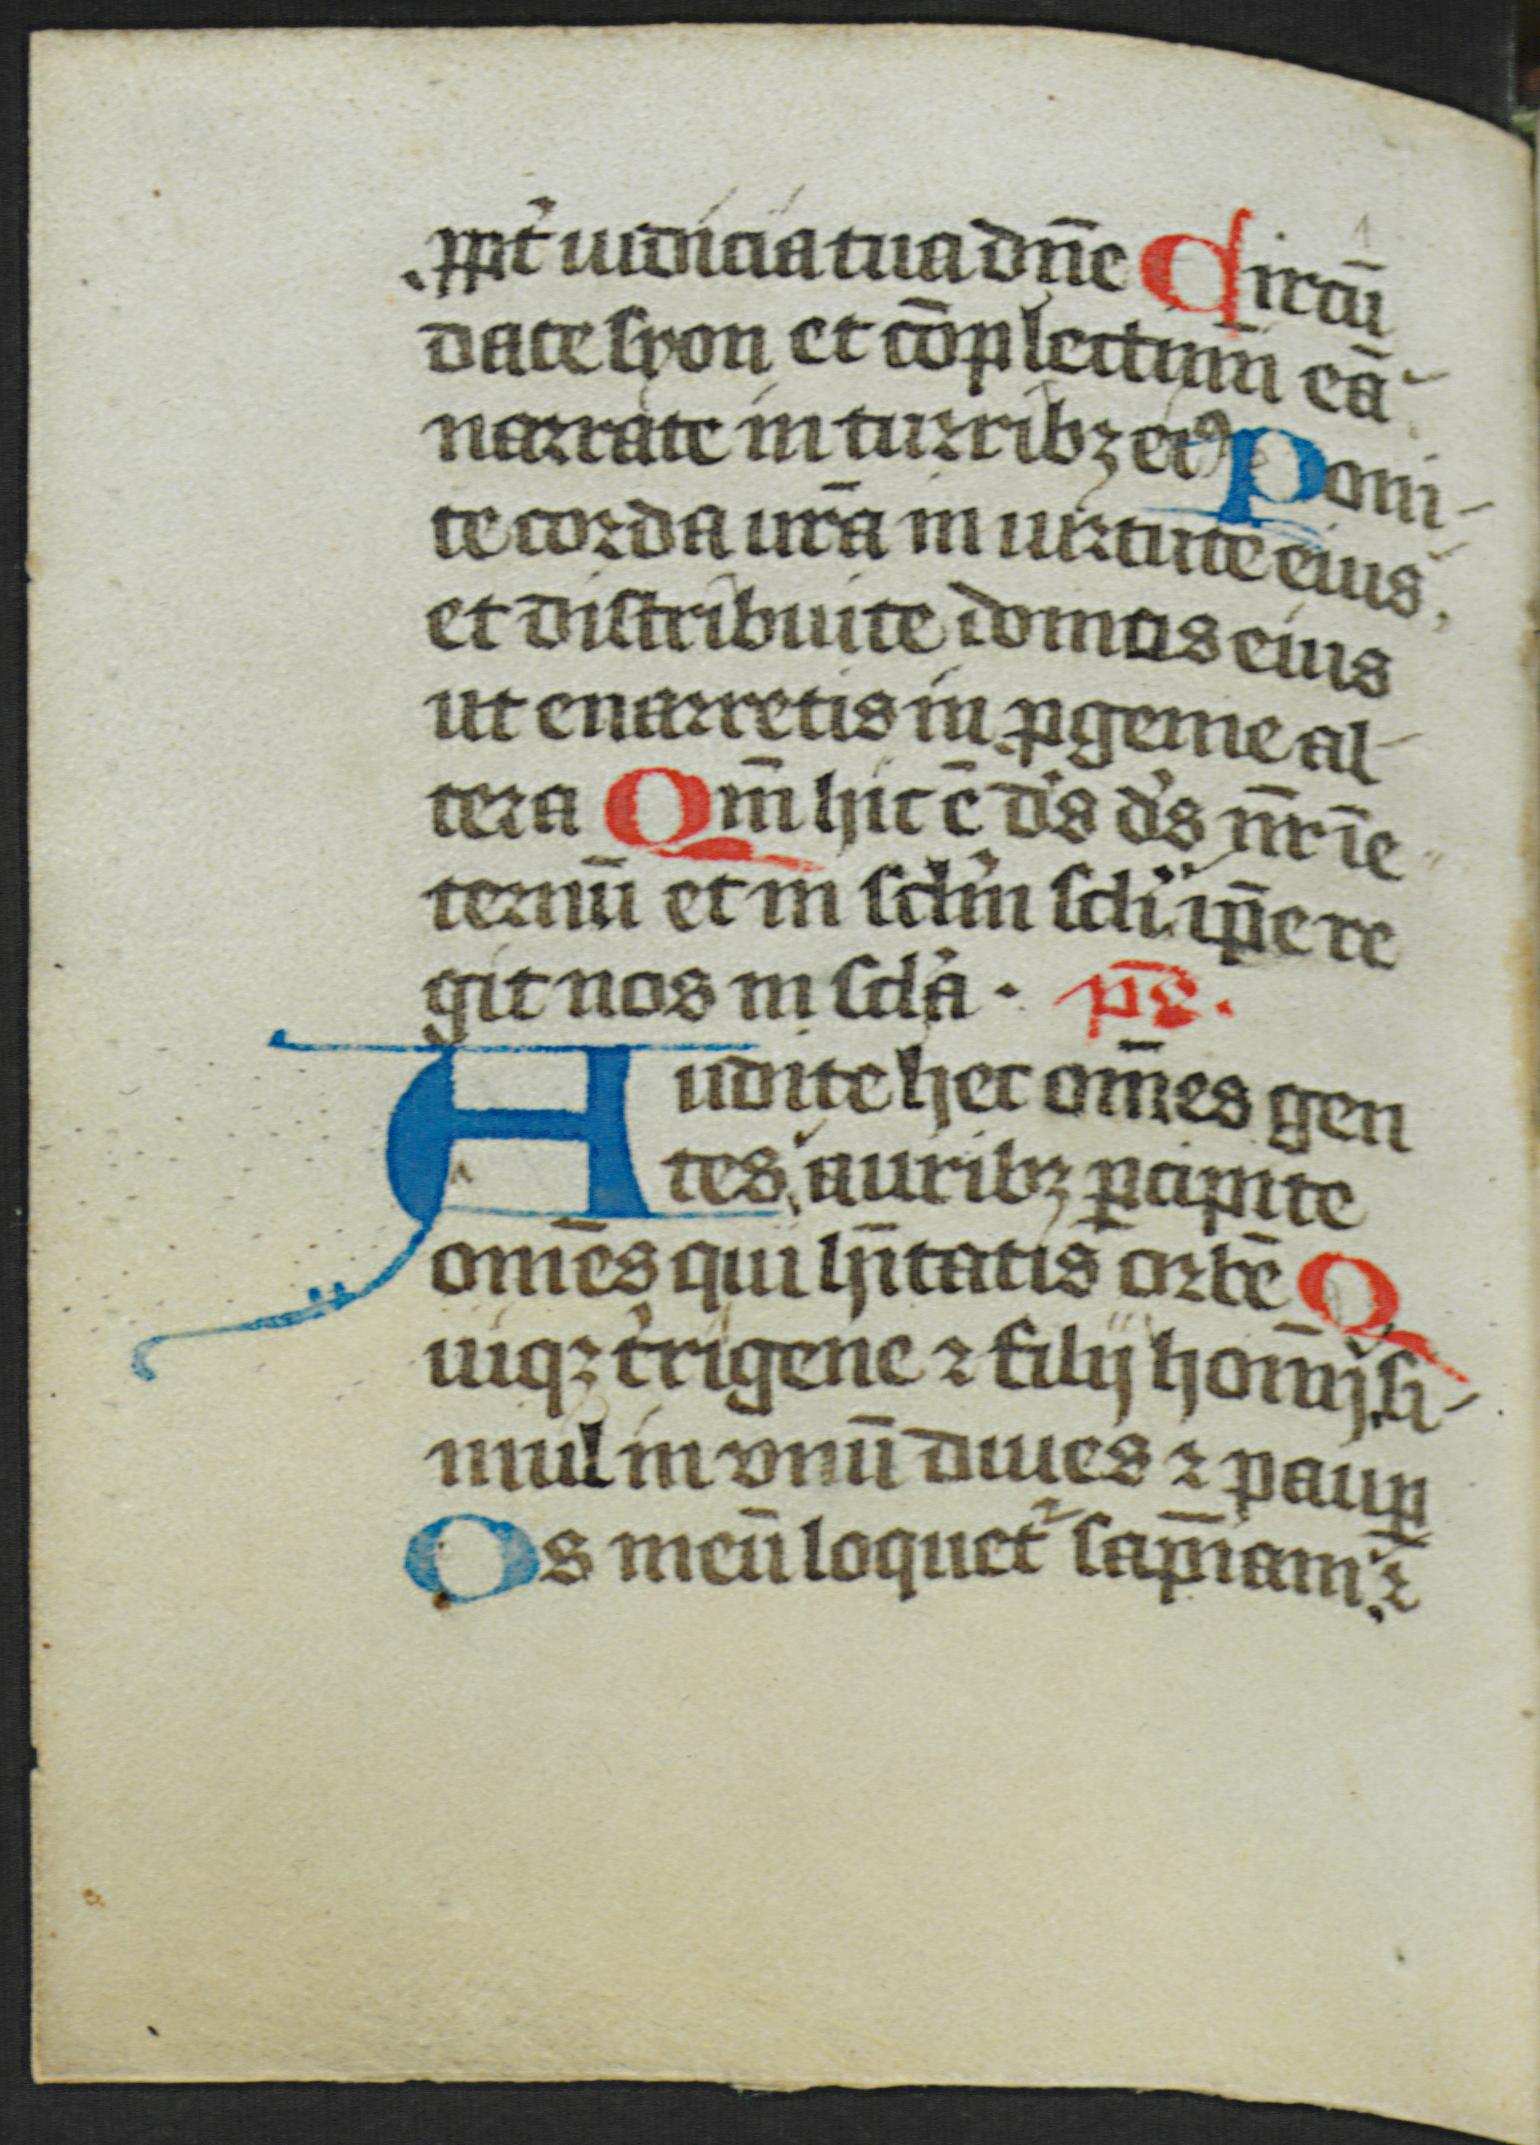 ꝓpt᷑ iudicia tua dn̄e Circū
date syon et cōplectimī eā
narrate in turribꝫ eiꝰ Poni-
te corda ur̄a in uirtute eius
et distribuite domos eius
ut enarretis in ꝓgenie al
tera Qm̄ hic ē d's d's nr̄ ī e
ternū et in scl'm scl'i ip̄e re
git nos in scl'a . ps̄.
Audite hec om̄es gen
tes auribꝫ ꝑcipite
om̄es qui hītatis orbē Q
uiqꝫ t'rigene ⁊ filij homīj si-
mul in vnū diues ⁊ pauꝑ
Os meū loquet᷑ sap̄iam ⁊